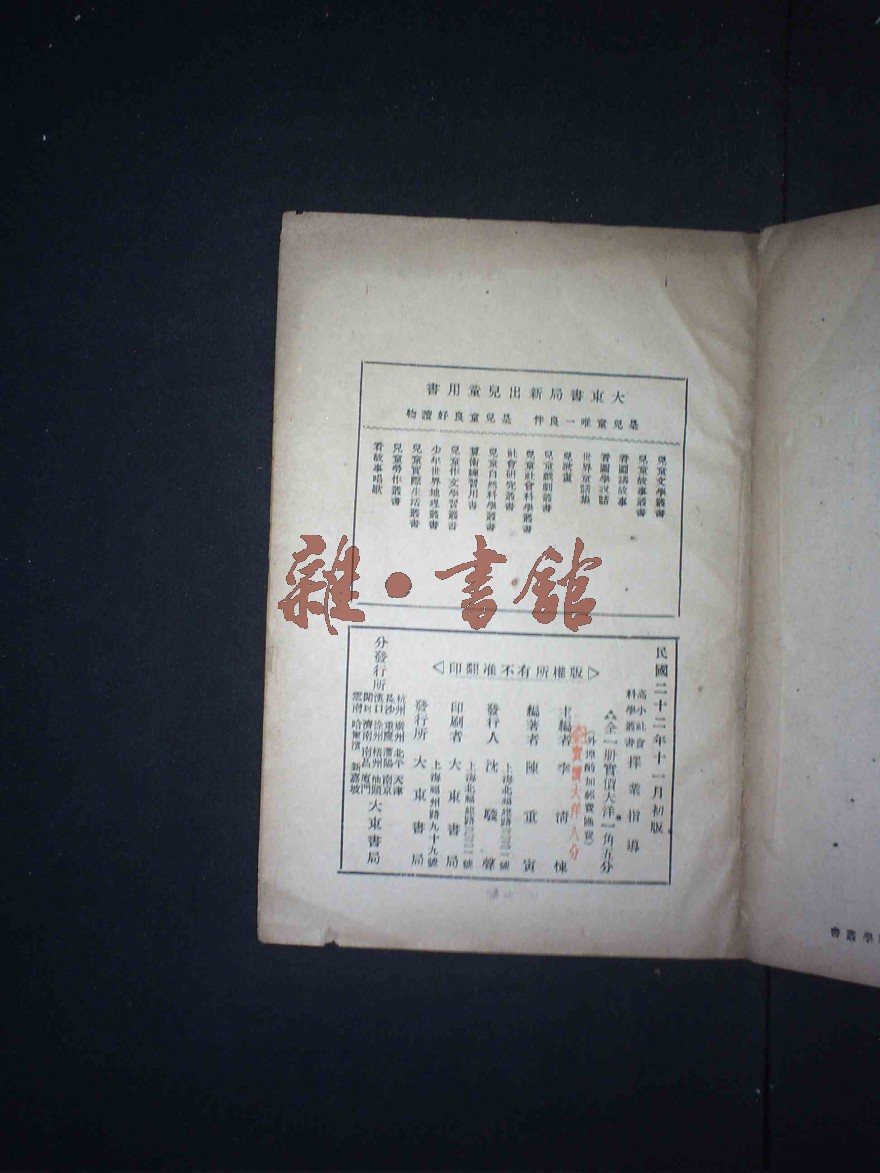 大東書局新出兒童用書
是兒童唯一良伴 是兒童良好讀物
兒童文學叢書
兒童故事叢書
看圖講故事
看圖學説話
世界童話集
兒歌畫
兒童戲劇叢書
兒童社會科學叢書
社會研究叢書
兒童自然科學叢書
算術練習用書
兒童作文學習叢書
少年世界地理叢書
兒童實際生活叢書
兒童勞作叢書
看故事唱歌
雜·書館
民國二十二年十一月初版
高小社會科學叢書 擇業指導
全一册實價大洋一角五分
(外埠酌加郵費匯費)
實價大洋八分
主編者 李清悚
編著者 陳重寅
發行人 沈駿聲
上海北福建路三三一號
印刷者 大東書局
上海福州路九十九號
發行所 大東書局
分發行所
杭州 廣州 北平 天津
長沙 重慶 瀋陽 南京
漢口 徐州 梧州 汕頭
開封 濟南 南昌 廈門
雲南 哈爾濱 新嘉坡
大東書局
版權所有不准翻印
學叢書